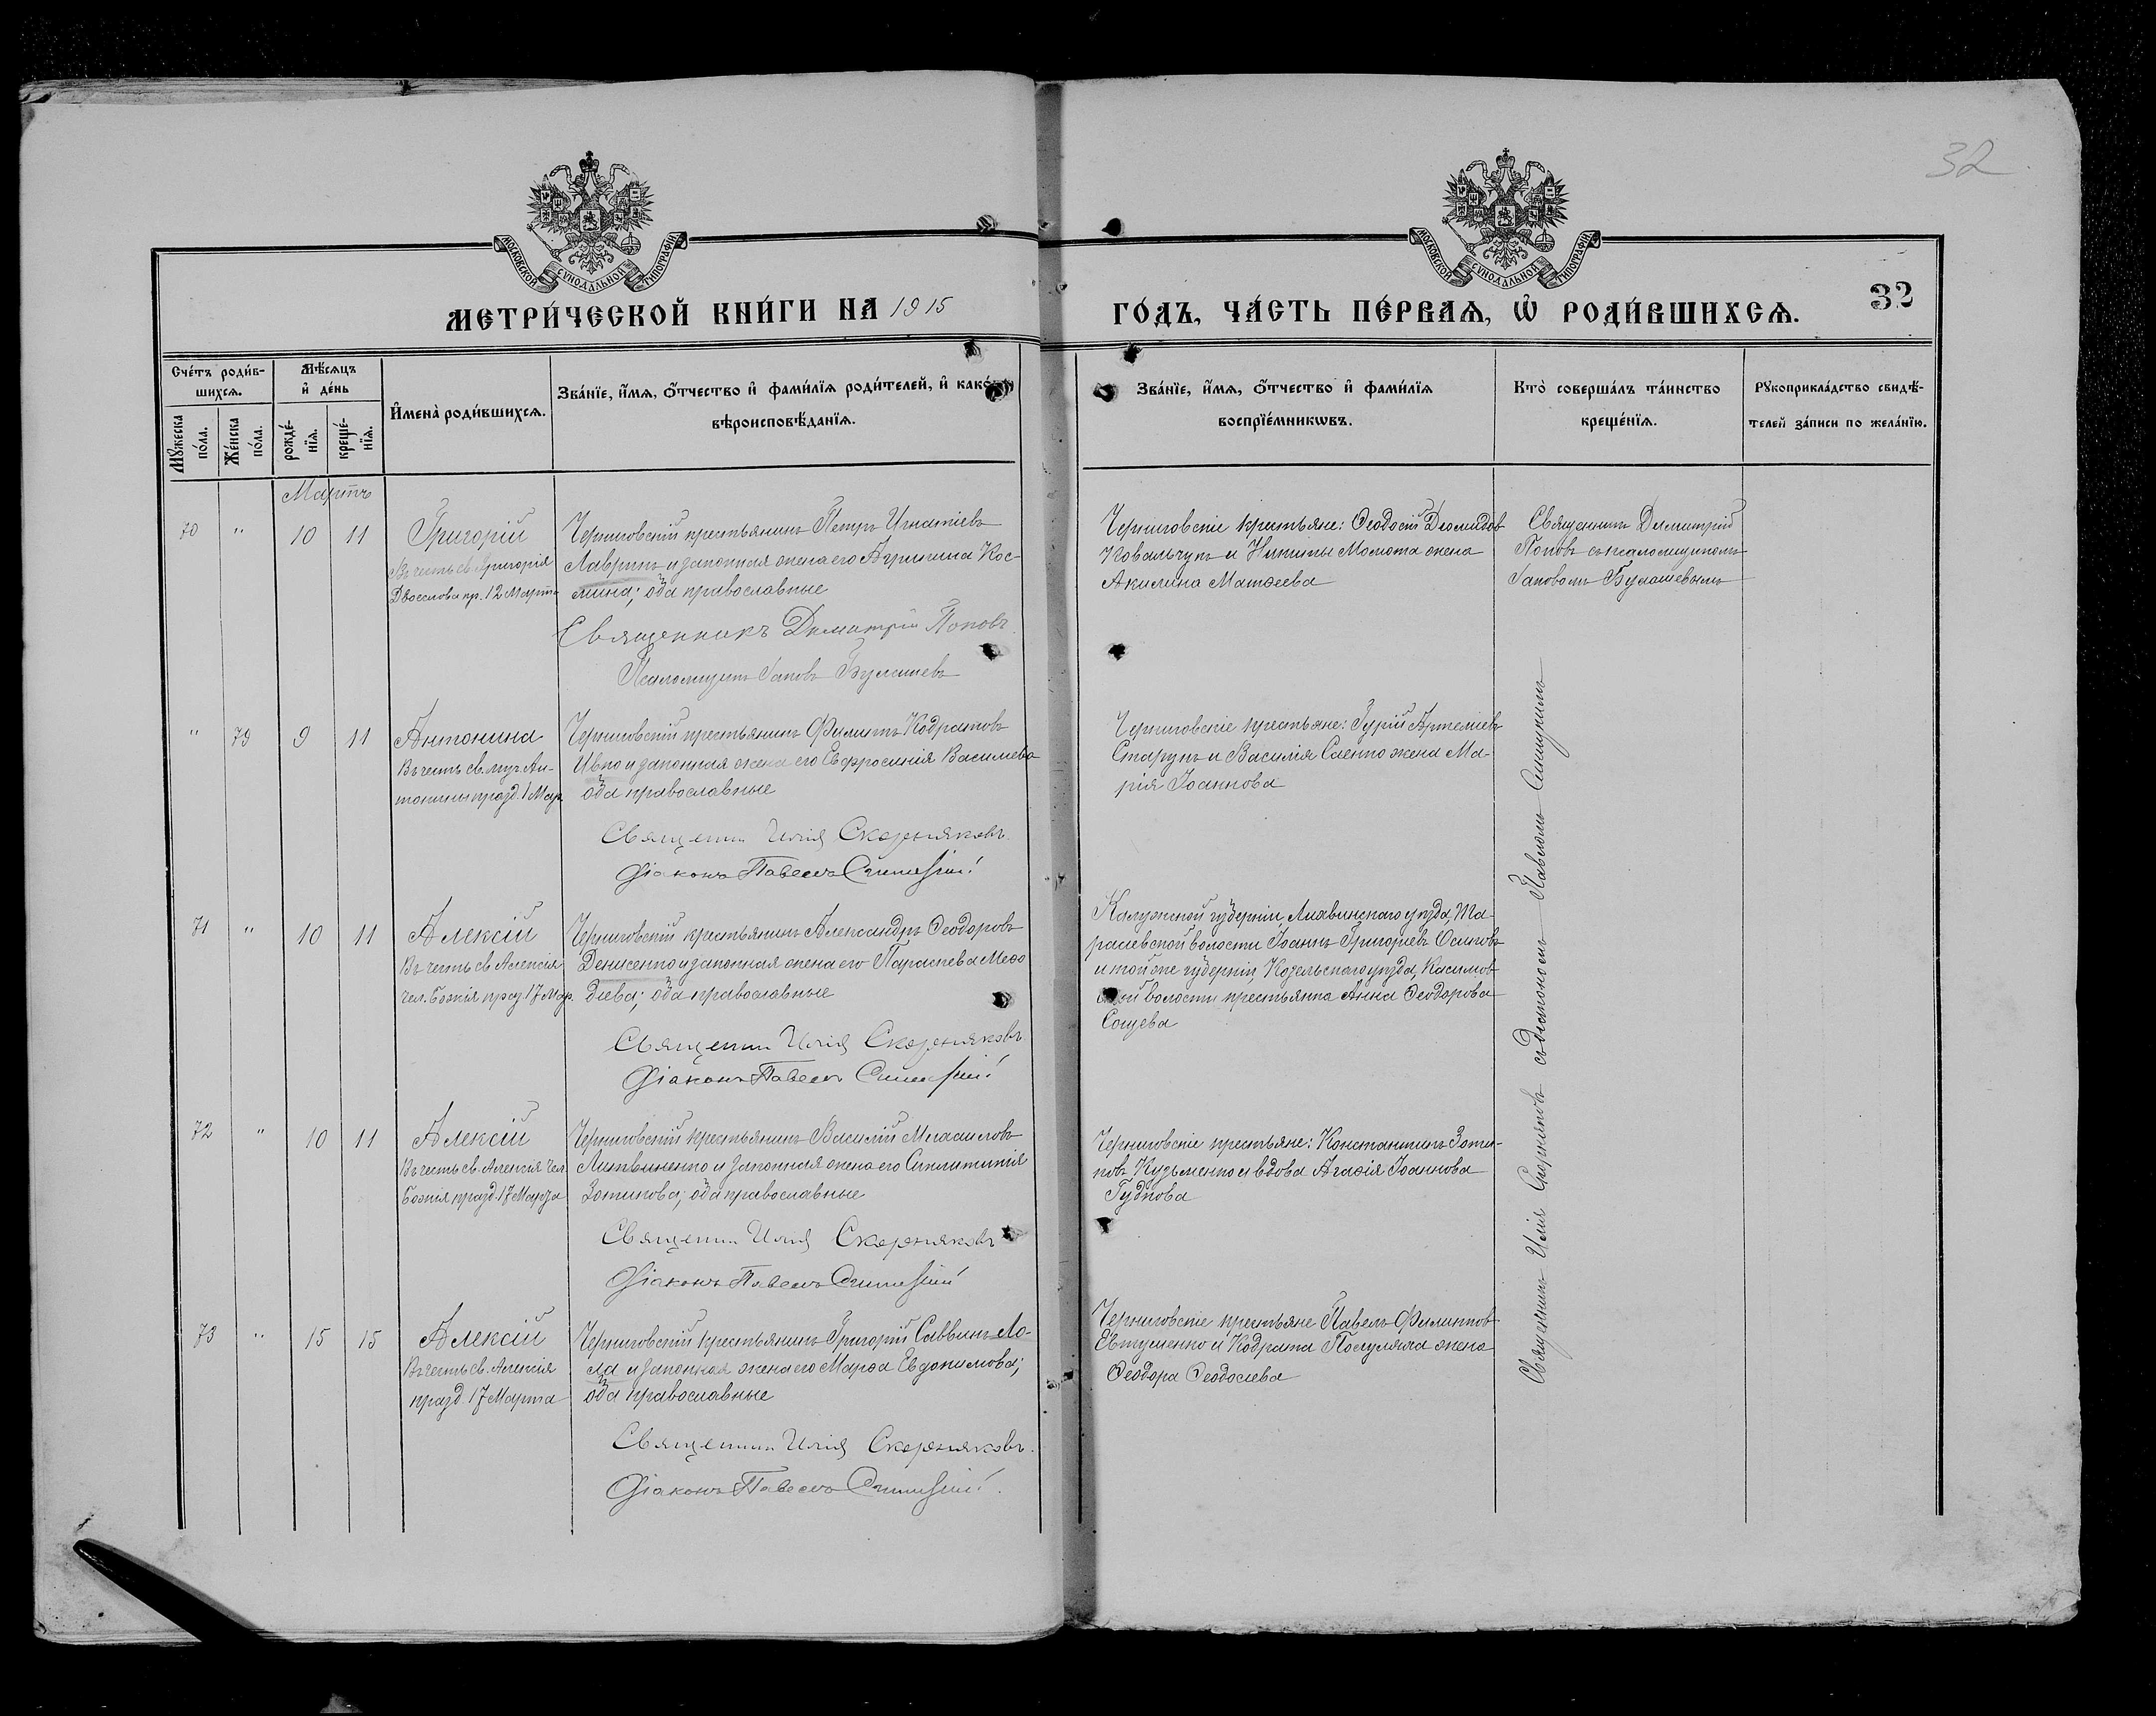 32
МОСКОВСКОЙ СѴНОДАЛЬНОЙ ТИПОГРАФІИ
МОСКОВСКОЙ СѴНОДАЛЬНОЙ ТИПОГРАФІИ
МЕТРИ́ЧЕСКОЙ КНИ́ГИ НА 1915
ГО́ДЪ, ЧА́СТЬ ПЕ́РВАѦ, Ѡ҆ РОДИ́ВШИХСѦ.
32
Сче́тъ роди́в-
шихсѧ.
Мꙋ́жеска
по́ла.
Же́нска
по́ла.
Мѣ́сѧцъ
и҆ де́нь
рожде́-
нїѧ.
креще́-
нїѧ.
И҆мена̀ роди́вшихсѧ.
Зва́нїе, и҆́мѧ, ѻ҆́тчество и҆ фами́лїѧ роди́телей, и҆ како́гѡ
вѣроисповѣ́данїѧ.
Зва́нїе, и҆́мѧ, ѻ҆́тчество и҆ фами́лїѧ
воспрїе́мникѡвъ.
Кто̀ соверша́лъ та́инство
креще́нїѧ.
Рꙋкоприкла́дство свидѣ́-
телей за́писи по жела́нїю.
Мартъ
70 " 10 11
Григорій
Въ честь св. Григорія
Двоеслова пр. 12 Март
Черниговскій крестьянинъ Петръ Игнатіевъ
Лаврикъ и законная жена его Кос-
мина; оба православные
Священникъ Димитрій Поповъ
Псаломщикъ Іаковъ Булашевъ
Черниговскіе крестьяне: Ѳеодосій Діомидов
Ковальчукъ и Никиты Момота жена
Акилина Матѳеева
Священникъ Димитрій
Поповъ съ псаломщикомъ
Іаковомъ Булашевымъ
" 79 9 11
Антонина
Въ честь св. муч. Ан-
тонины празд. 1 Мар.
Черниговскій крестьянинъ Филиппъ Кодратовъ
Ивко и законная жена его Евфросинія Василіева
оба православные
Священникъ Илія Скорняковъ.
Діаконъ Павелъ
Черниговскіе крестьяне: Гурій Артеміевъ
Старунъ и Василія Саенко жена Ма-
рія Іоаннова
71 " 10 11
Алексій
Въ честь св. Алексія
чел. Божія празд. 17 Мар.
Черниговскій крестьянинъ Александръ Ѳеодоровъ
Денисенко и законная жена его Параскева Меѳо
діева; оба православные
Священникъ Илія Скорняковъ.
Діаконъ Павелъ
Калужской губерніи Лихвинскаго уѣзда,
волости Іоаннъ Григоріевъ Осиповъ
и той же губерніи, Козельскаго уѣзда,
волости крестьянка Анна Ѳеодорова
72 " 10 11
Алексій
Въ честь св. Алексія чел.
Божія празд. 17 Марта
Черниговскій крестьянинъ Василій Михаиловъ
Литвиненко и законная жена его Синклитикія
Зотикова; оба православные
Священникъ Илія Скорняковъ
Діаконъ Павелъ
Черниговскіе крестьяне: Константинъ Зоти-
ковъ Кузьменко и вдова Агаѳія Іоаннова
Гудкова
73 " 15 15
Алексій
Въ честь св. Алексія
празд. 17 Марта
Черниговскій крестьянинъ Григорій Саввинъ Ло-
и законная жена его Марѳа Евдокимова;
оба православные
Священникъ Илія Скорняковъ.
Діаконъ Павелъ
Черниговскіе крестьяне Павелъ Филипповъ
Евтушенко и Кодрата жена
Ѳеодора Ѳеодосіева
Священникъ Илія Скорняковъ съ діакономъ Павломъ